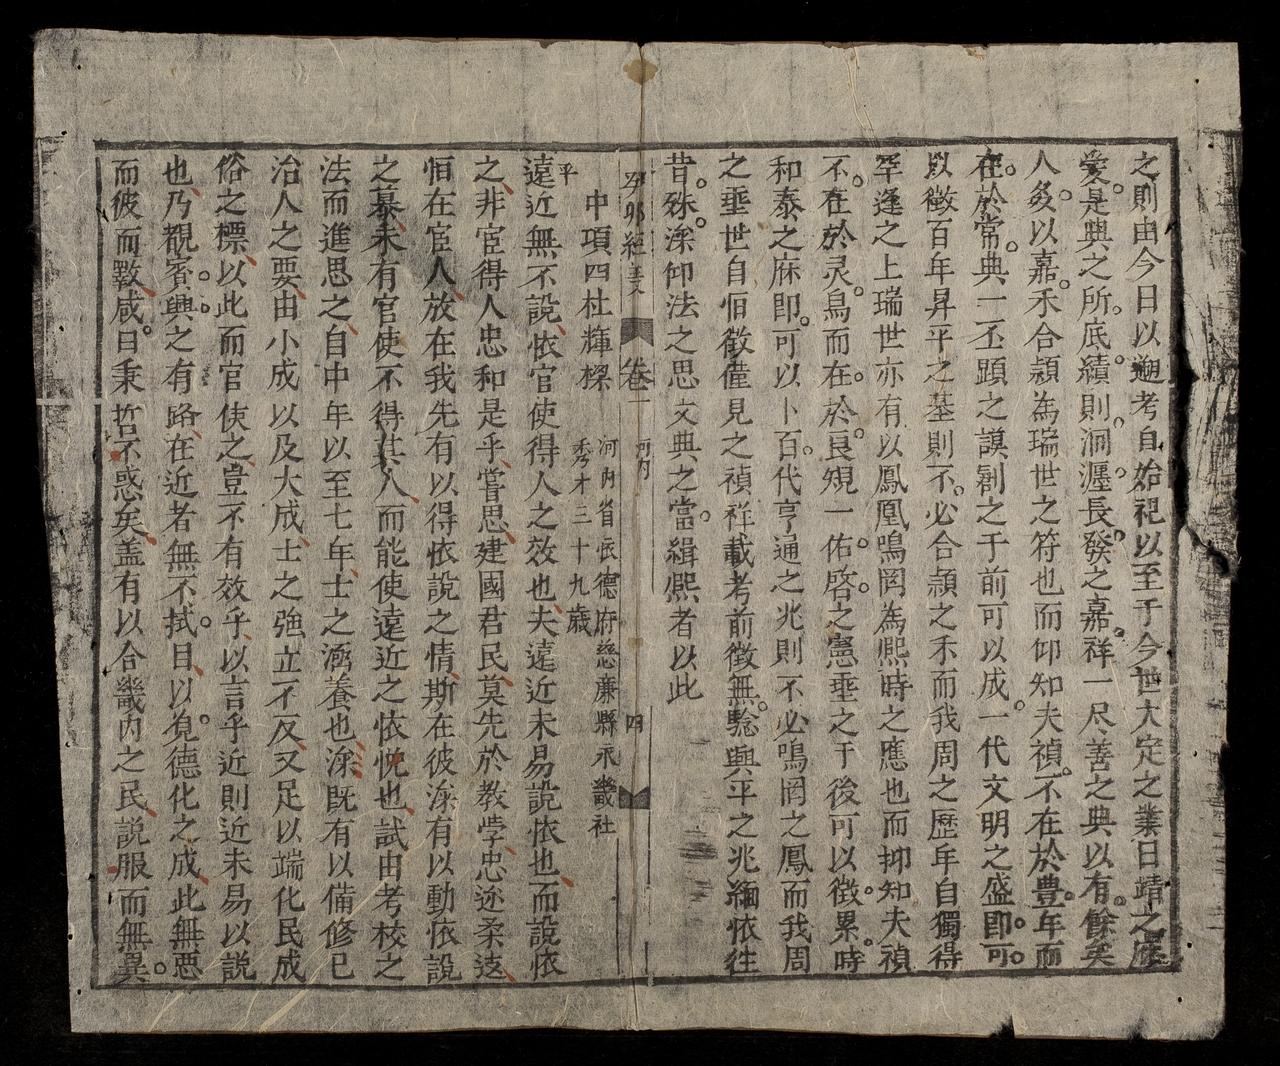 之則由今日以遡考自始祀以至于今世大定之業日靖之應
愛是興之所底績則洞瀍長發之嘉祥一尽善之典以有餘矣
人爻以嘉禾合頴為瑞世之符也而仰知夫禎不在於豊年而
在於常典一丕顕之謨創之于前可以成一代文明之盛即可
以徵百年昇平之基則不必合頴之禾而我周之歷年自獨得
罕逢之上瑞世亦有以鳳凰鳴罔為熙時之應也而抑知夫禎
不在於灵鳥而在於良規一佑啓之憲垂之于後可以徵累時
和泰之庥即可以卜百代亨通之兆則不必鳴罔之鳳而我周
之垂世自恒徵僅見之禎祥載考前徵無騐興平之兆緬依往
昔殊深仰法之思文典之當緝熙者以此
卷一
河内
四
中項四杜輝樑
河内省依德府慈廉縣永畿社
秀才三十九歲
平
遠近無不說依官使得人之效也夫遠近未易說依也而說依
之非宦得人忠和是乎嘗思建國君民莫先於教學忠迩柔遠
恒在宦人放在我先有以得依說之情斯在彼深有以動依說
之慕未有官使不得其人而能使遠近之依悦也試由考校之
法而進思之自中年以至七年士之涵養也深既有以備修已
治人之要由小成以及大成士之強立不反又足以端化民成
俗之標以此而官使之豈不有效乎以言乎近則近未易以說
也乃覩賓興之有路在近者無不拭目以覓德化之成此無惡
而彼而斁咸曰秉哲不惑矣盖有以合畿内之民說服而無異